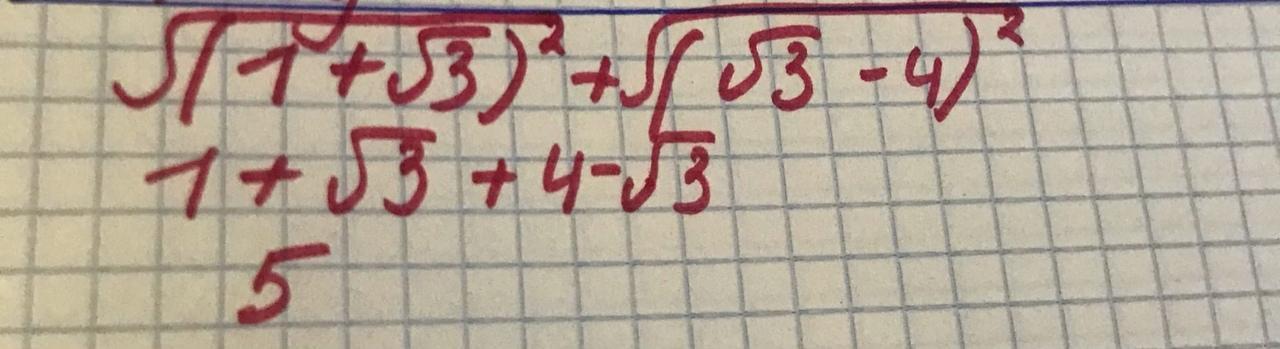 √(1+√3)² + √(√3 - 4)²
1 + √3 + 4 - √3
5